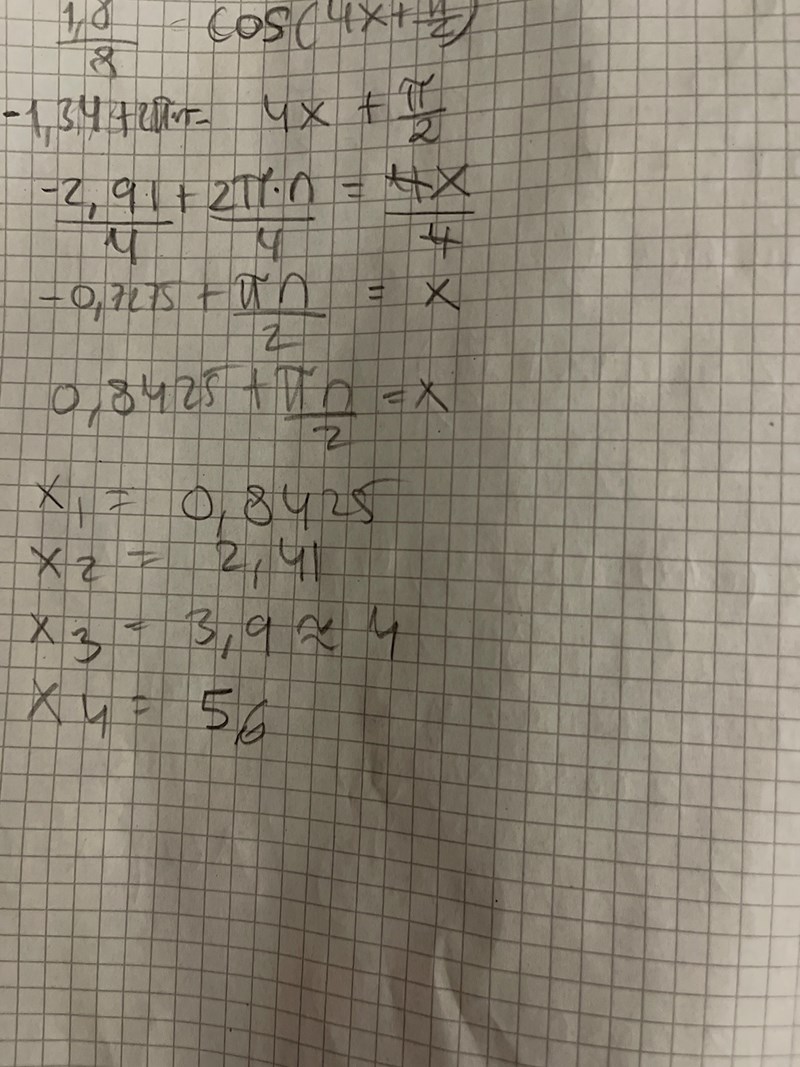 1,8/8 = cos(4x+π/2)
-1,34+2πn= 4x + π/2
-2,91/4 + 2π·n/4 = 4x/4
-0,7275 + πn/2 = x
0,8425 + πn/2 = x
x1 = 0,8425
x2 = 2,41
x3 = 3,9 ≈ 4
x4 = 5,6